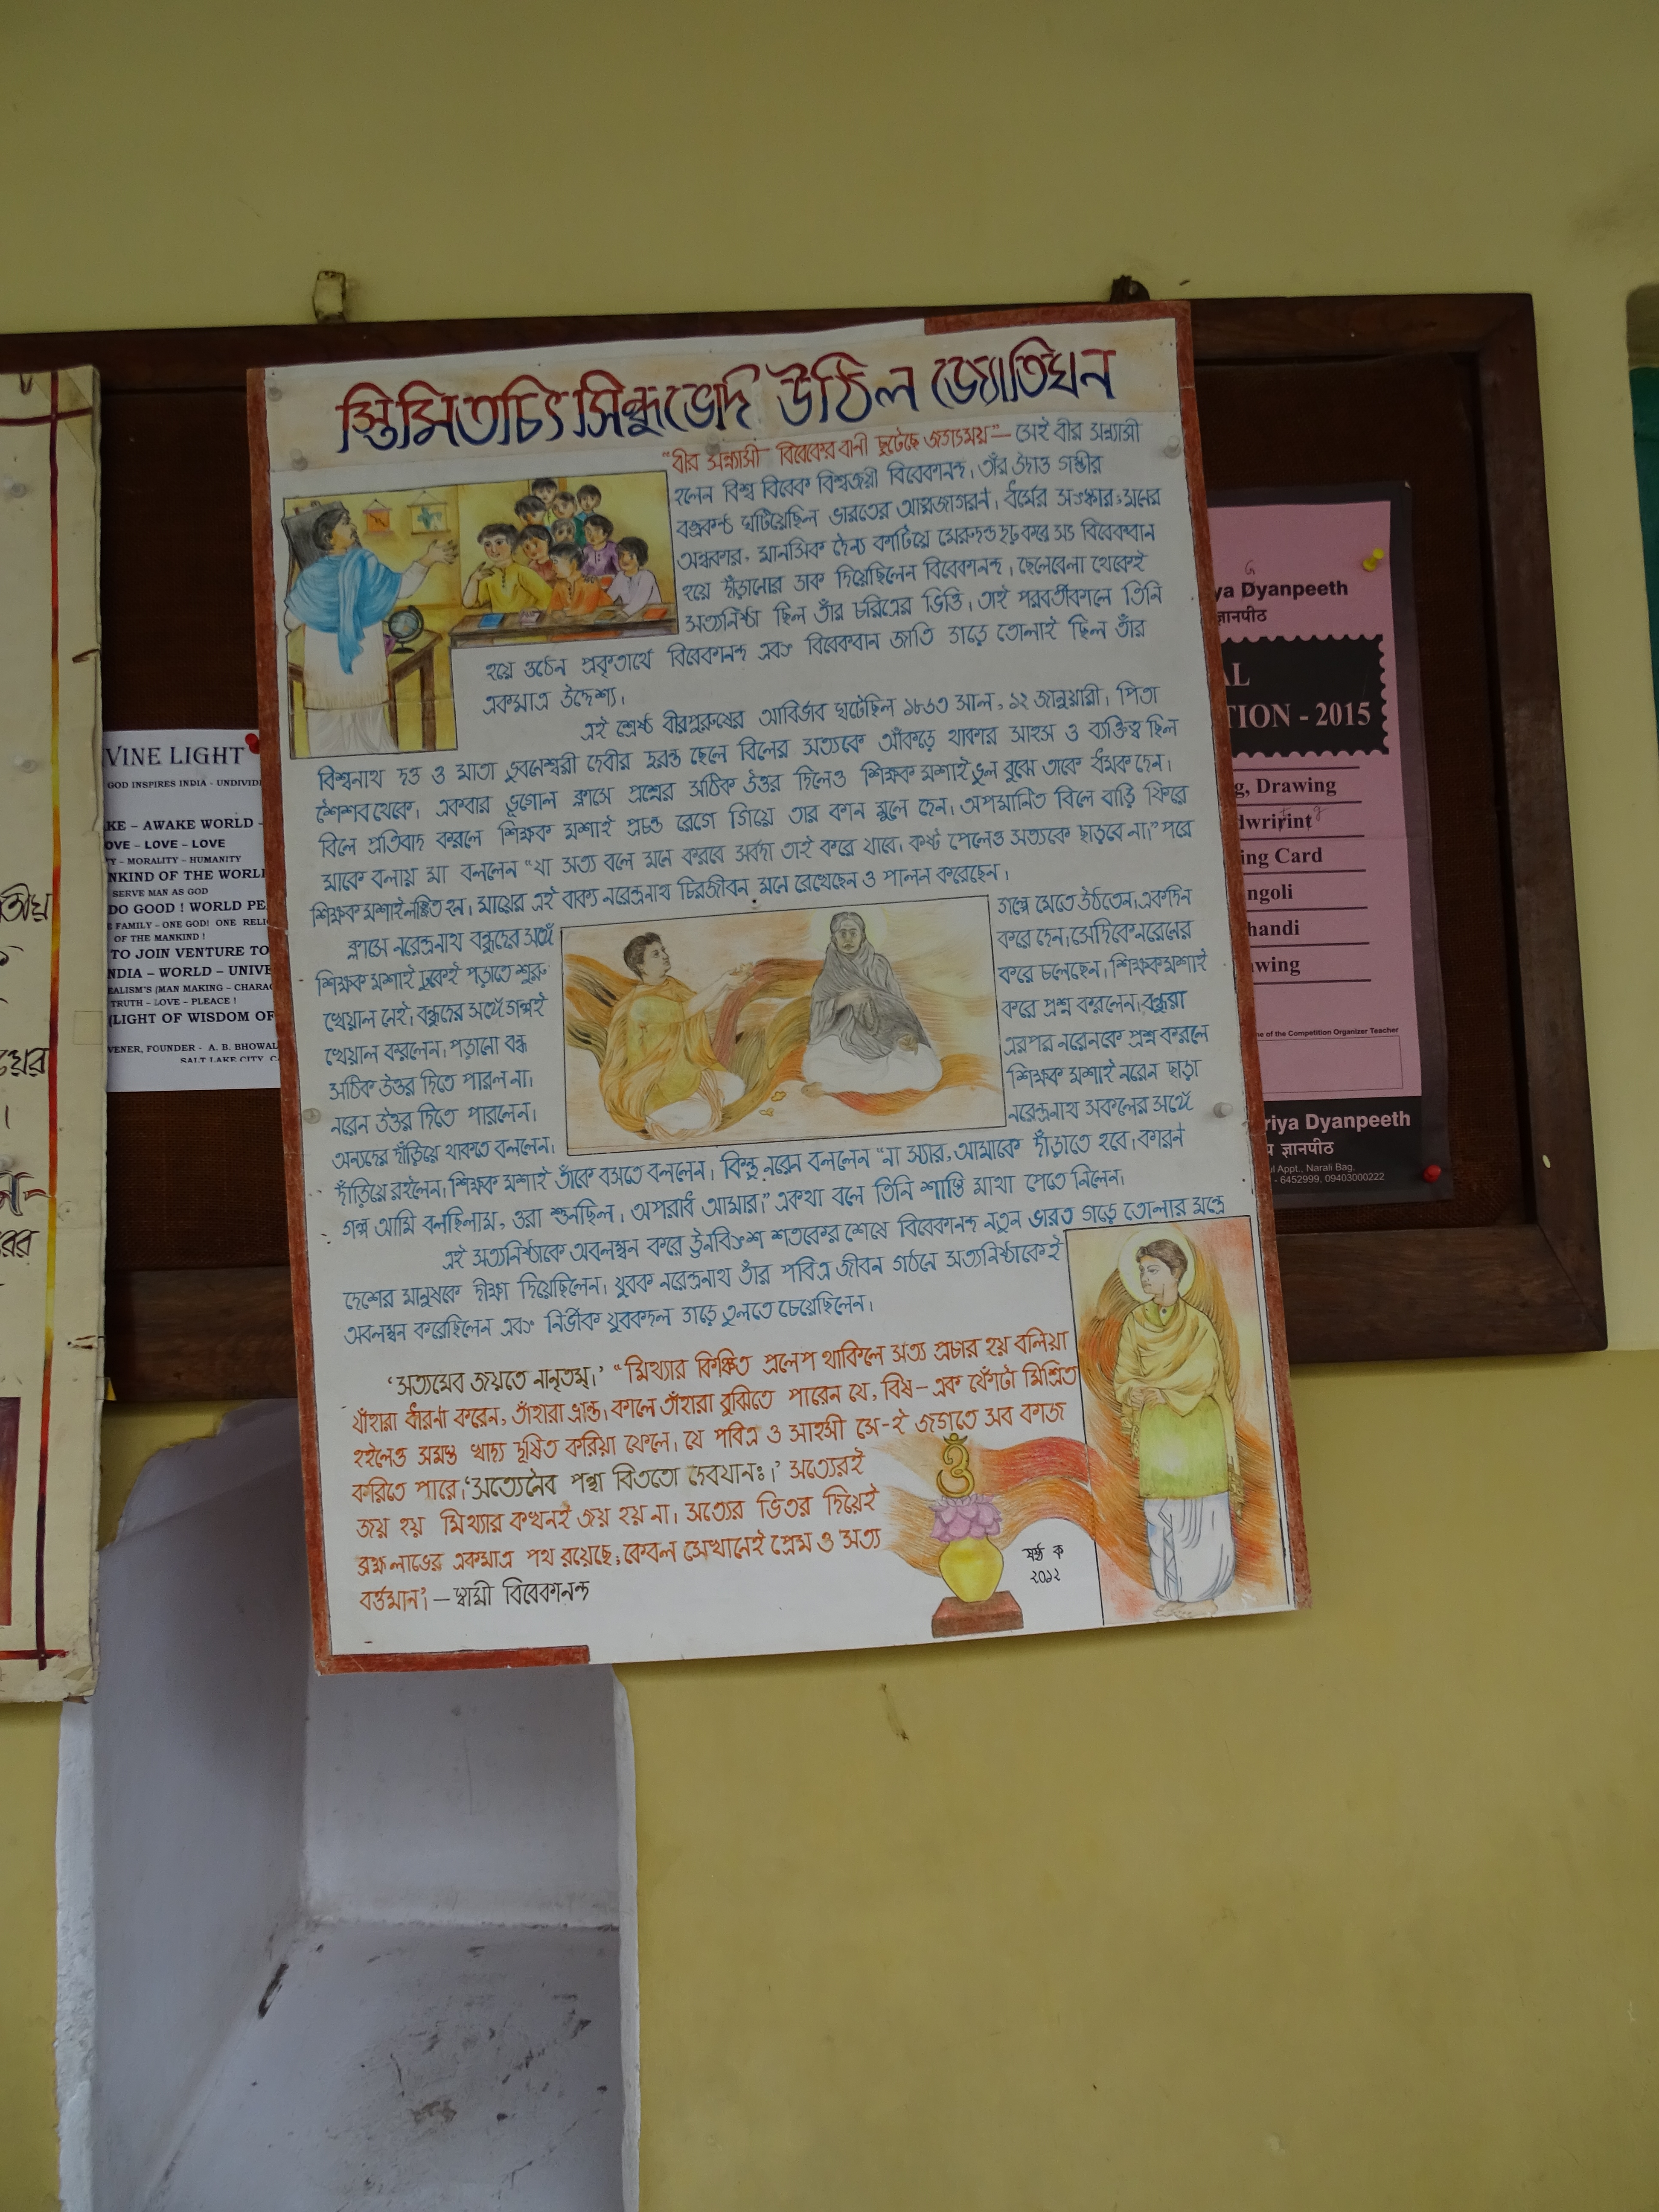 স্তিমিতচিৎ সিন্ধুভেদি উঠিল জ্যোতিঘন
"বীর সন্ন্যাসী বিবেকের বাণী ছুটেছে জগৎময়" — সেই বীর সন্ন্যাসী
হলেন বিশ্ব বিবেক বিশ্বজয়ী বিবেকানন্দ। তাঁর উদাত্ত গম্ভীর
বজ্রকন্ঠ ঘটিয়েছিল ভারতের আত্মজাগরণ। ধর্মের সংস্কার, মনের
অন্ধকার, মানসিক দৈন্য কাটিয়ে মেরুদন্ড দৃঢ় করে সৎ বিবেকবান
হয়ে দাঁড়ানোর ডাক দিয়েছিলেন বিবেকানন্দ। ছেলেবেলা থেকেই
সত্যনিষ্ঠা ছিল তাঁর চরিত্রের ভিত্তি। তাই পরবর্তীকালে তিনি
হয়ে ওঠেন প্রকৃতার্থে বিবেকানন্দ এবং বিবেকবান জাতি গড়ে তোলাই ছিল তাঁর
একমাত্র উদ্দেশ্য।
এই শ্রেষ্ঠ বীরপুরুষের আবির্ভাব ঘটেছিল ১৮৬৩ সাল, ১২ জানুয়ারী। পিতা
বিশ্বনাথ দত্ত ও মাতা ভুবনেশ্বরী দেবীর দুরন্ত ছেলে বিলের সত্যকে আঁকড়ে থাকার সাহস ও ব্যক্তিত্ব ছিল
শৈশব থেকে। একবার ভূগোল ক্লাসে প্রশ্নের সঠিক উত্তর দিলেও শিক্ষক মশাই ভুল বুঝে তাকে ধমক দেন।
বিলে প্রতিবাদ করলে শিক্ষক মশাই প্রচন্ড রেগে গিয়ে তার কান মুলে দেন। অপমানিত বিলে বাড়ি ফিরে
মাকে বলায় মা বললেন "যা সত্য বলে মনে করবে সর্বদা তাই করে যাবে। কষ্ট পেলেও সত্যকে ছাড়বে না।" পরে
শিক্ষক মশাই লজ্জিত হন। মায়ের এই বাক্য নরেন্দ্রনাথ চিরজীবন মনে রেখেছেন ও পালন করেছেন।
ক্লাসে নরেন্দ্রনাথ বন্ধুদের সঙ্গে গল্পে মেতে উঠতেন। একদিন
শিক্ষক মশাই ঢুকেই পড়াতে শুরু করে দেন। সেদিকে নরেনের
খেয়াল নেই। বন্ধুদের সঙ্গে গল্পই করে চলেছেন। শিক্ষক মশাই
খেয়াল করলেন। পড়ানো বন্ধ করে প্রশ্ন করলেন। বন্ধুরা
সঠিক উত্তর দিতে পারল না। এরপর নরেনকে প্রশ্ন করলে
নরেন উত্তর দিতে পারলেন। শিক্ষক মশাই নরেন ছাড়া
অন্যদের দাঁড়িয়ে থাকতে বললেন। নরেন্দ্রনাথ সকলের সঙ্গে
দাঁড়িয়ে রইলেন। শিক্ষক মশাই তাঁকে বসতে বললেন। কিন্তু নরেন বললেন "না স্যার, আমাকে দাঁড়াতে হবে। কারণ
গল্প আমি বলছিলাম, ওরা শুনছিল। অপরাধ আমার।" একথা বলে তিনি শাস্তি মাথা পেতে নিলেন।
এই সত্যনিষ্ঠাকে অবলম্বন করে উনবিংশ শতকের শেষে বিবেকানন্দ নতুন ভারত গড়ে তোলার মন্ত্রে
দেশের মানুষকে দীক্ষা দিয়েছিলেন। যুবক নরেন্দ্রনাথ তাঁর পবিত্র জীবন গঠনে সত্যনিষ্ঠাকেই
অবলম্বন করেছিলেন এবং নির্ভীক যুবকদল গড়ে তুলতে চেয়েছিলেন।
'সত্যমেব জয়তে নানৃতম্।' "মিথ্যার কিঞ্চিত প্রলেপ থাকিলে সত্য প্রচার হয় বলিয়া
যাঁহারা ধারণা করেন, তাঁহারা ভ্রান্ত। কালে তাঁহারা বুঝিতে পারেন যে, বিষ — এক ফোঁটা মিশ্রিত
হইলেও সমস্ত খাদ্য দূষিত করিয়া ফেলে। যে পবিত্র ও সাহসী সে-ই জগতে সব কাজ
করিতে পারে। 'সত্যেনৈব পন্থা বিততো দেবযানঃ।' সত্যেরই
জয় হয় মিথ্যার কখনই জয় হয় না। সত্যের ভিতর দিয়েই
ব্রহ্মলাভের একমাত্র পথ রয়েছে, কেবল সেখানেই প্রেম ও সত্য
বর্ত্তমান'। — স্বামী বিবেকানন্দ
ওঁ
ষষ্ঠ ক
২০১২
VINE LIGHT
GOD INSPIRES INDIA - UNDIVID
KE – AWAKE WORLD -
OVE – LOVE - LOVE
Y – MORALITY – HUMANITY
NKIND OF THE WORL
SERVE MAN AS GOD
DO GOOD ! WORLD PE
FAMILY – ONE GOD! ONE RELI
OF THE MANKIND !
TO JOIN VENTURE TO
NDIA – WORLD – UNIVE
EALISM'S (MAN MAKING – CHARA
TRUTH – LOVE – PLEACE !
(LIGHT OF WISDOM OF
VENER, FOUNDER - A. B. BHOWAL
SALT LAKE CITY, C
ya Dyanpeeth
G
ज्ञानपीठ
AL
TION - 2015
g, Drawing
dwrirint
g
ing Card
ngoli
handi
wing
me of the Competition Organizer Teacher
riya Dyanpeeth
य ज्ञानपीठ
ul Appt., Narali Bag,
- 6452999, 09403000222